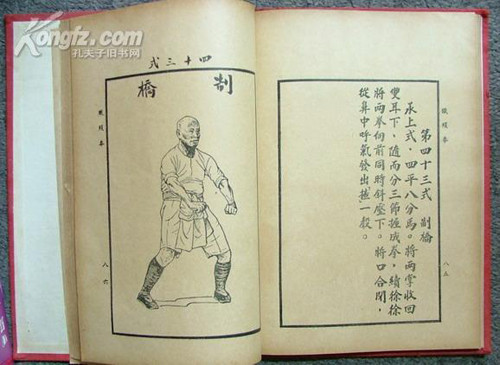 Kongfz.com
孔夫子旧书网
鐵綫拳
第四十三式 制橋
承上式，四平八分馬。將兩掌收回
雙耳下，隨而分三節捶成拳，續徐徐
將兩拳向前同時斜壓下。將口合閉，
從鼻中呼氣發出一
八五
四十三式
制橋
鐵綫拳
八六